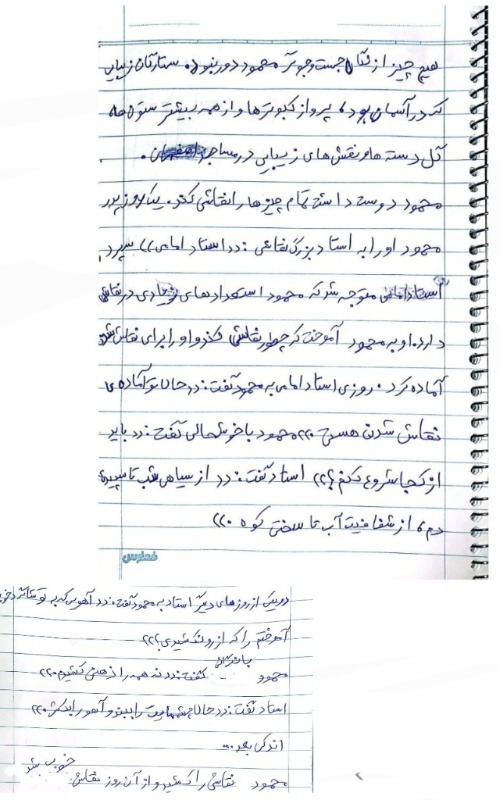 هیچ چیز از نگاه جست و جوگر محمود دور نبود. ستارگان زیبایی
که در آسمان بود، پرواز کبوترها و از همه بیشتر ستون ها
گل دسته ها و نقش های زیبایی در مساجد اصفهان.
محمود دوست داشت تمام چیزها را نقاشی کند. یک روز پدر
محمود او را به استاد بزرگ نقاشی: ((استاد امامی)) سپرد
استاد امامی متوجه شد که محمود استعدادهای زیادی در نقاشی
دارد او به محمود آموخت که چطور نقاشی کند و او را برای نقاش شدن
آماده کرد. روزی استاد امامی به محمود گفت: ((حالا تو آماده ی
نقاش شدن هستی.)) محمود با خوش حالی گفت: ((باید
از کجا شروع کنم؟)) استاد گفت: ((از سیاهی شب تا سپیده
دم، از شفافیت آب تا سختی کوه.))
فهارس
در یکی از روزهای دیگر استاد به محمود گفت: ((آهویی که به تو
آموختم را که از رو نکشیدی؟))
محمود گفت: ((نه همه را ذهنی کشیدم.))
استاد گفت: ((حالا چشمهایت را ببند و آهو را بکش.))
اندکی بعد...
محمود نقاشی را کشید و از آن روز نقاش خوبی شد